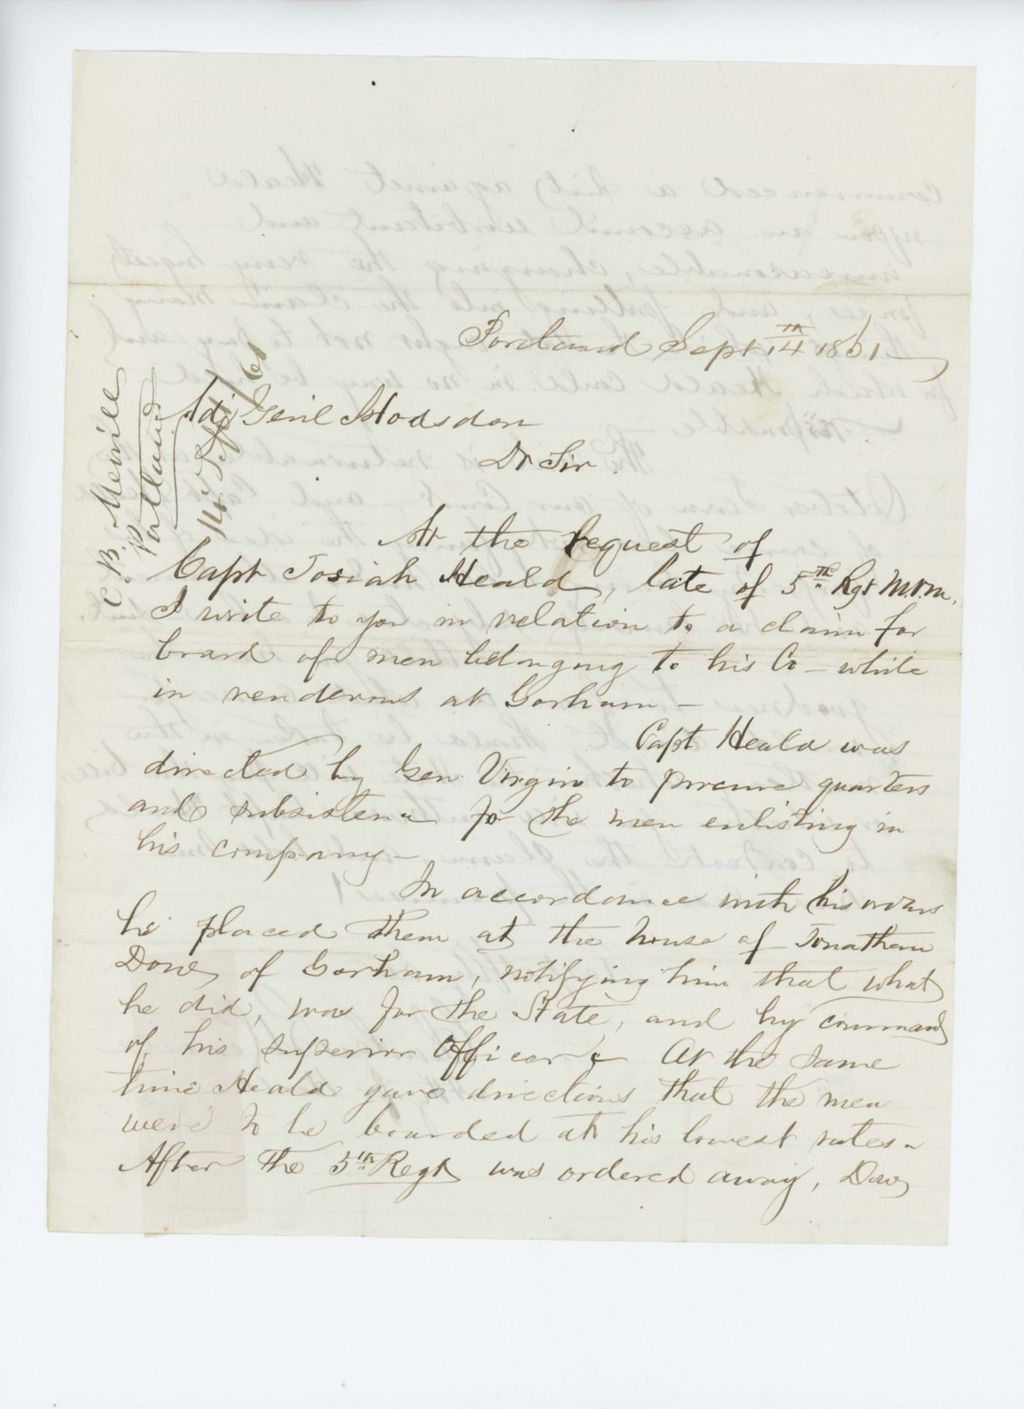 Portland Sept 14th 1861
Adj Genl Hodsdon
Dr Sir.
At the request of
Capt Josiah Heald, late of 5th Regt M.V.M.
I write to you in relation to a claim for
board of men belonging to his Co - while
in rendevous at Gorham -
Capt Heald was
directed by Gen Virgin to procure quarters
and subsistence for the men enlisting in
his company -
In accordance with his orders
he placed them at the house of Jonathan
Dow, of Gorham, notifying him that what
he did, was for the State, and by command
of his superior Officer & At the same
time Heald gave directions that the men
were to be boarded at his lowest rates -
After the 5th Regt was ordered away, Dow,
C. B. Merrill
Portland
14 Sept/61